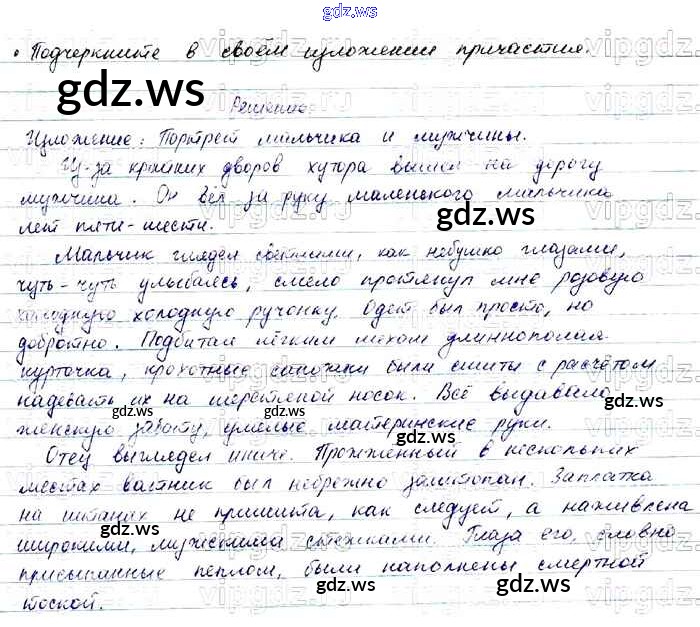 gdz.ws
• Подчеркните в своём изложении причастия.
gdz.ws
Решение:
Изложение: Портрет мальчика и мужчины.
Из-за крайних дворов хутора вышел на дорогу
мужчина. Он вёл за руку маленького мальчика
лет пяти-шести.
gdz.ws
Мальчик глядел светлыми, как небушко глазами,
чуть-чуть улыбаясь, смело протянул мне розовую
холодную ручонку. Одет был просто, но
добротно. Подбитая лёгким мехом длиннополая
курточка, крохотные сапожки были сшиты с расчётом
надевать их на шерстяной носок. Всё выдавало
gdz.ws gdz.ws gdz.ws
женскую заботу, умелые материнские руки.
Отец выглядел иначе. Прожжённый в нескольких
местах ватник был небрежно заштопан. Заплатка
на штанах не пришита, как следует, а наживлена
широкими, мужскими стежками. Глаза его, словно
gdz.ws gdz.ws
присыпанные пеплом, были наполнены смертной
тоской.